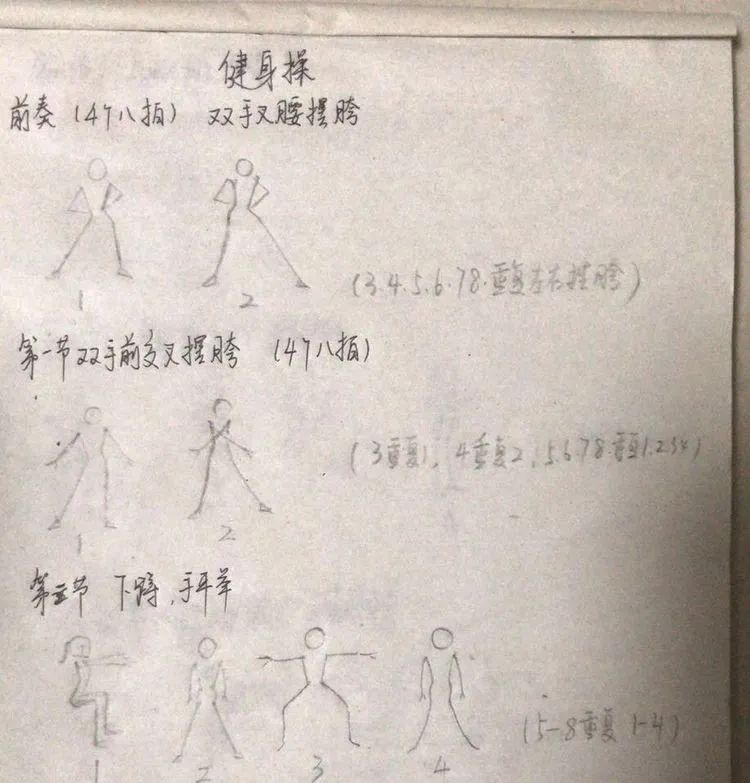 健身操
前奏（4个八拍） 双手叉腰摆胯
1 2 （3.4.5.6.78.重复左右摆胯）
第一节双手前交叉摆胯 （4个八拍）
1 2 （3重复1，4重复2，5.6.78.重复1.234）
第二节 下蹲，手平举
1 2 3 4 （5-8重复 1-4）